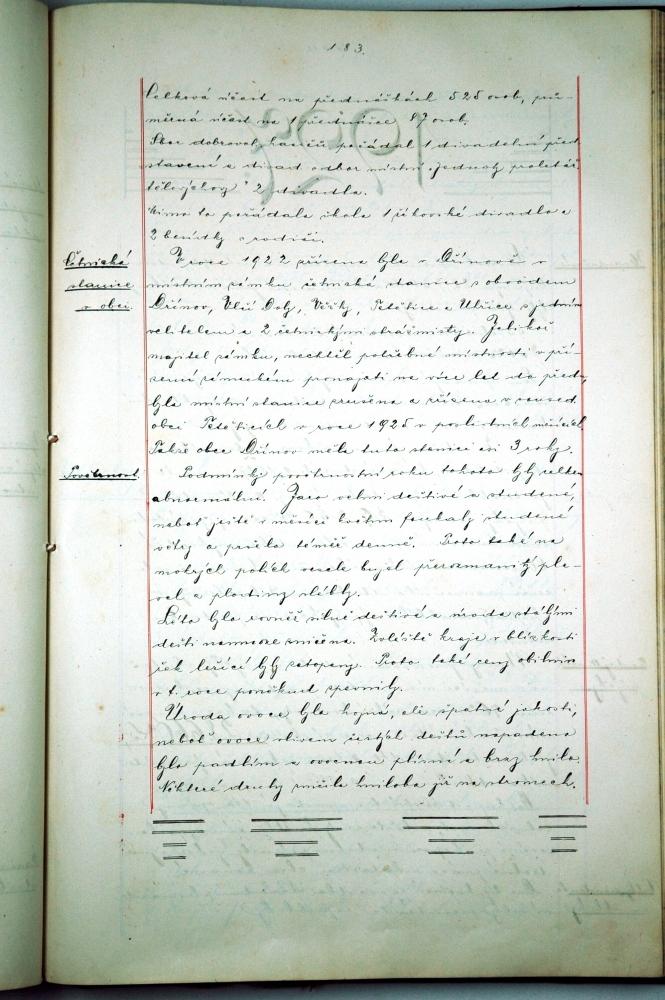 183.
Celková účast na přednáškách 525 osob, prů-
měrná účast na 1 přednášce 87 osob.
Sbor dobrovol. hasičů pořádal 1 divadelní před-
stavení a divad. odbor místní "Jednoty proletář.
tělovýchovy" 2 divadla.
Mimo to pořádala škola 1 žákovské divadlo a
2 besídky s rodiči.
Četnická
stanice
v obci.
V roce 1922 zřízena byla v Dřínově v
místním zámku četnická stanice s obvodem
Dřínov, Uhy, Ješetice a Uhřice s jedním
velitelem a 2 četnickými strážmistry. Jelikož
majitel zámku, nechtěl potřebné místnosti v pří-
zemí zámeckém pronajati na více let do předu,
byla místní stanice zrušena a zřízena v soused.
obci v roce 1925 v posledních měsících.
Takže obec Dřínov měla tuto stanici asi 3 roky.
Povětrnost.
Podmínky povětrnostní roku tohoto byly celkem
abnormální. Jaro velmi deštivé a studené,
neboť ještě v měsíci květnu foukaly studené
větry a pršelo téměř denně. Proto také na
mokrých polích vesele bujel přerozmanitý ple-
vel a plodiny slábly.
Léto bylo rovněž silně deštivé a úroda stálými
dešti nanmoze zničena. Zvláště kraje v blízkosti
řek ležící byly zatopeny. Proto také ceny obilnin
v t. roce poněkud zpevnily.
Úroda ovoce byla hojná, ale špatné jakosti,
neboť ovoce vlivem častých dešťů napadena
byla padlím a ovocnou plísní a brzy hnilo.
Některé druhy zničila hniloba již na stromech.